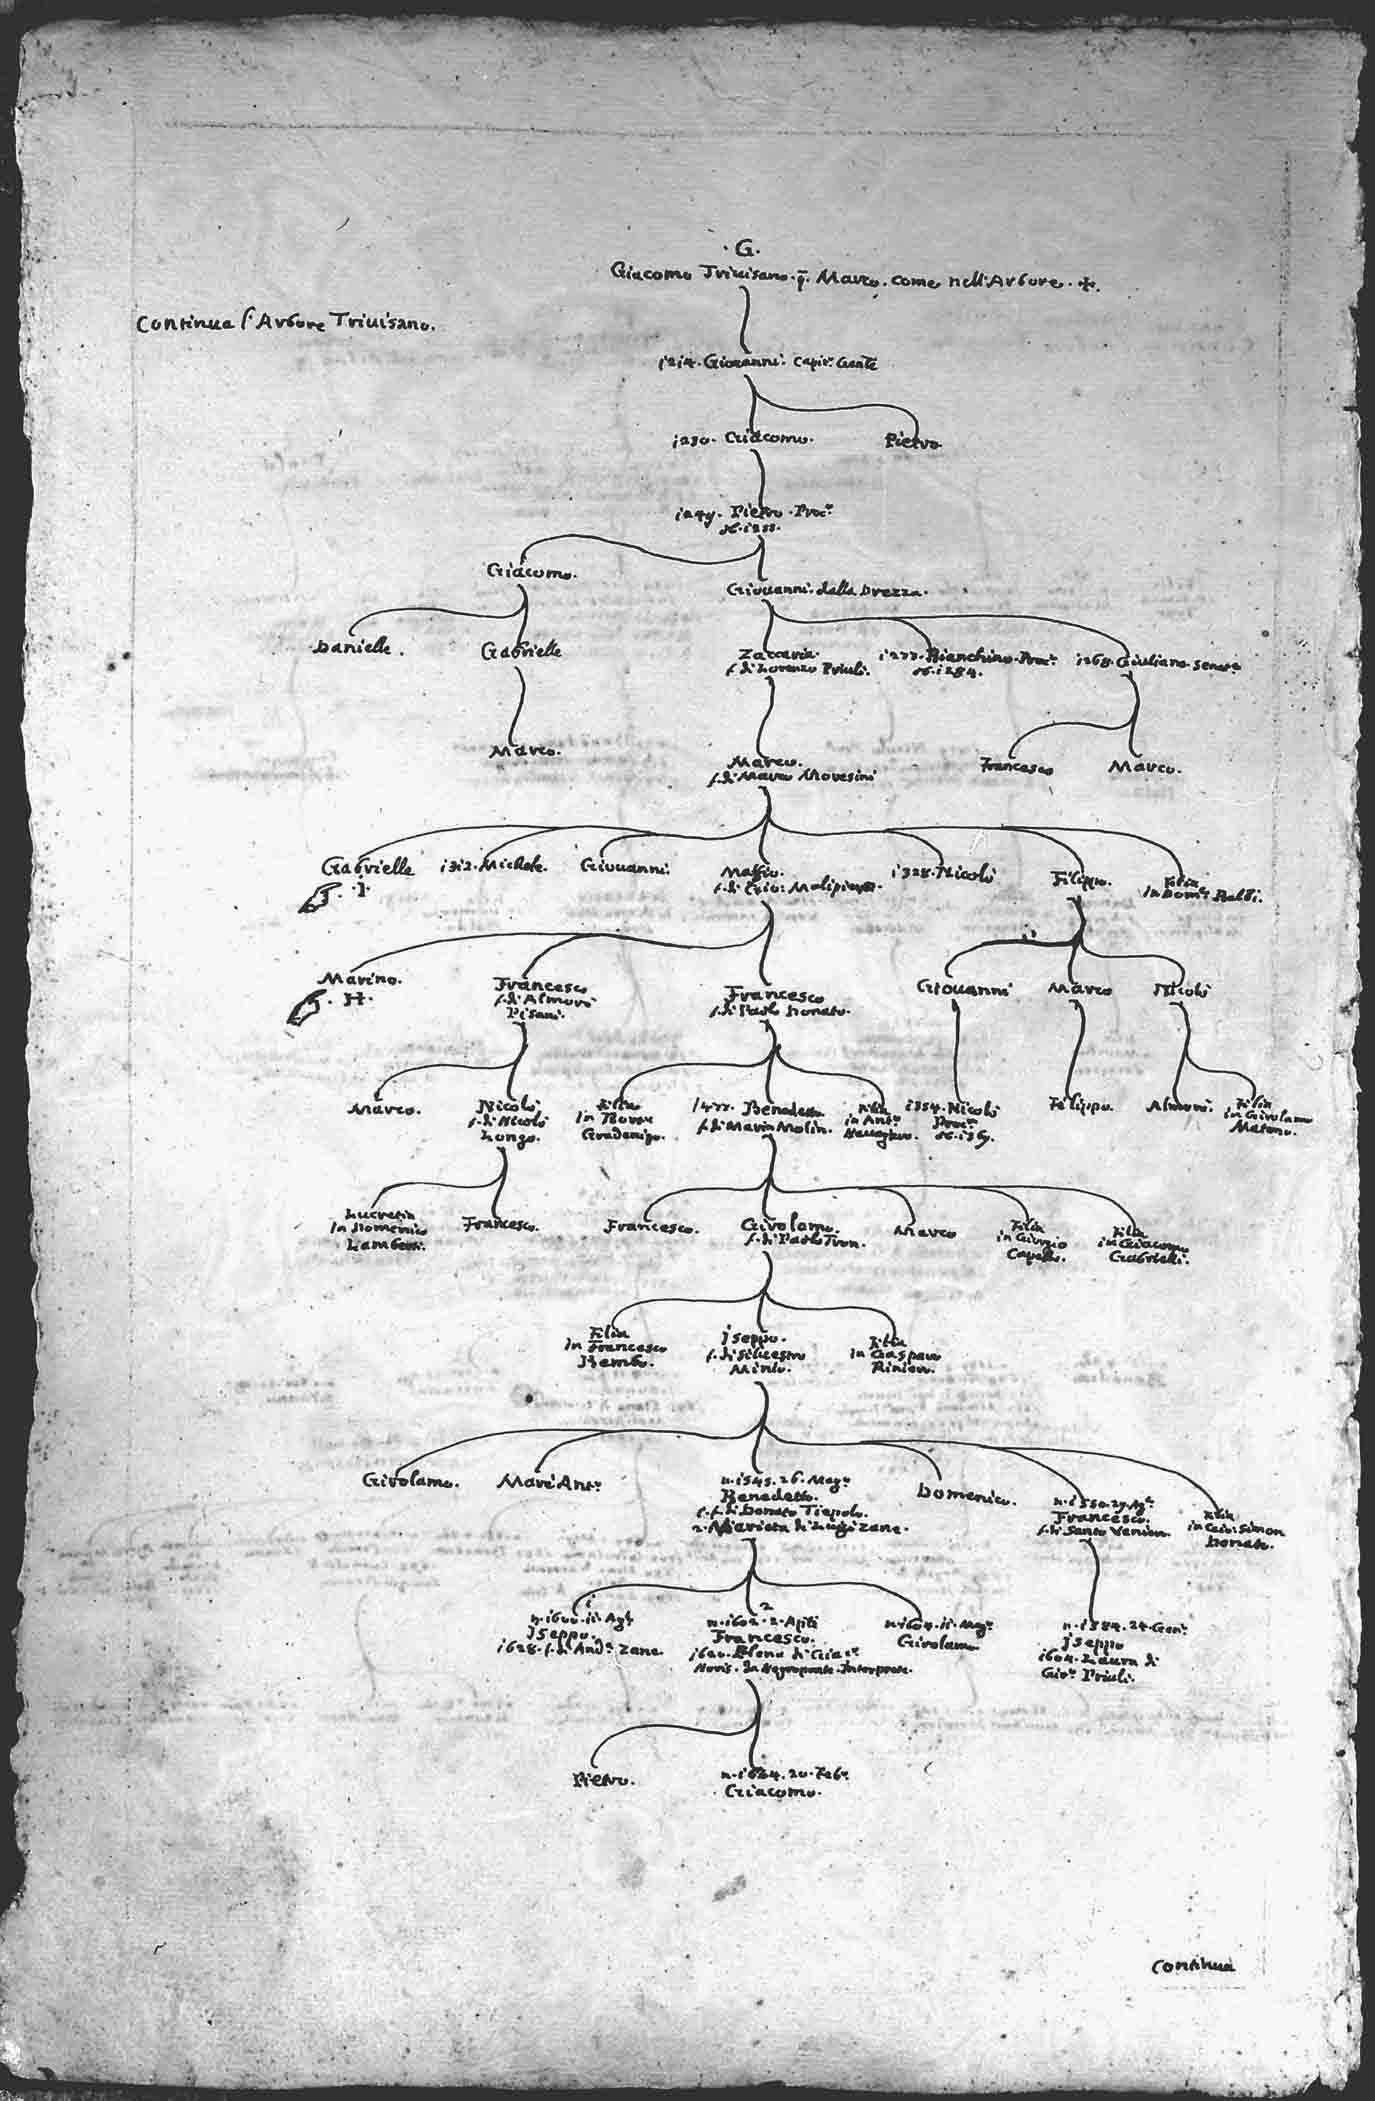 .G.
Giacomo Triuisano. q. Marco. come nell'Arbore. +.
Continua l'Arbore Triuisano.
1214. Giovanni. Capit.
1230. Giacomo.
Pietro.
Pietro. Proc.r
Giacomo.
Giouanni. dalla Drezza.
Danielle.
Gabrielle
Zaccaria.
f. di Lorenzo Priuli.
1277. Bianchino. Proc.r
ob. 1284.
1268. Giuliano. Senat.r
Marco.
Marco.
f. di Marco Moresini
Francesco
Marco.
Gabrielle
.I.
1312. Michele.
Giouanni.
Maffio.
f. di Gio: Malipiero.
1328. Nicolò
Filippo.
Filia
in Dom.o Balbi.
Marino.
.H.
Francesco
f. di Almorò
Pisani.
Francesco
f. di Paolo Donato.
Giouanni
Marco
Nicolò
Marco.
Nicolò
f. di Nicolò
Longo.
Filia
in
Gradenigo.
Benedetto
f. di Marin Molin.
Filia
in Ant.o
1354. Nicolò
Proc.r
Filippo.
Almorò.
Filia
in Girolamo
Lucretia
in Domenico
Lamberti.
Francesco.
Francesco.
Girolamo.
f. di Paolo Tron.
Marco
Filia
in Giorgio
Capello.
Filia
in Giacomo
Gabrielli.
Filia
in Francesco
Bembo.
Jseppo.
f. di Siluestro
Minio.
Filia
in Gasparo
Girolamo.
Marc'Ant.o
n. 1545. 26. Mag.o
Benedetto.
f. di Donato Tiepolo.
2. Marieta di Luigi Zane.
Domenico.
n. 1550. 29. Ag.o
Francesco.
f. di Santo Venier.
Filia
in Gio: Simon
Donato.
1
n. 1600. 11. Ag.o
Jseppo.
1628. f. di And.a Zane
2
n. 1602. 2. Aprile
Francesco.
Elena di
in Negroponte Interprete.
n. 1604. 11. Mag.o
Girolamo
n. 1584. 24. Gen.o
Jseppo
1604. Laura di
Gir.o Priuli.
Pietro.
20. Feb.o
Giacomo.
Continua